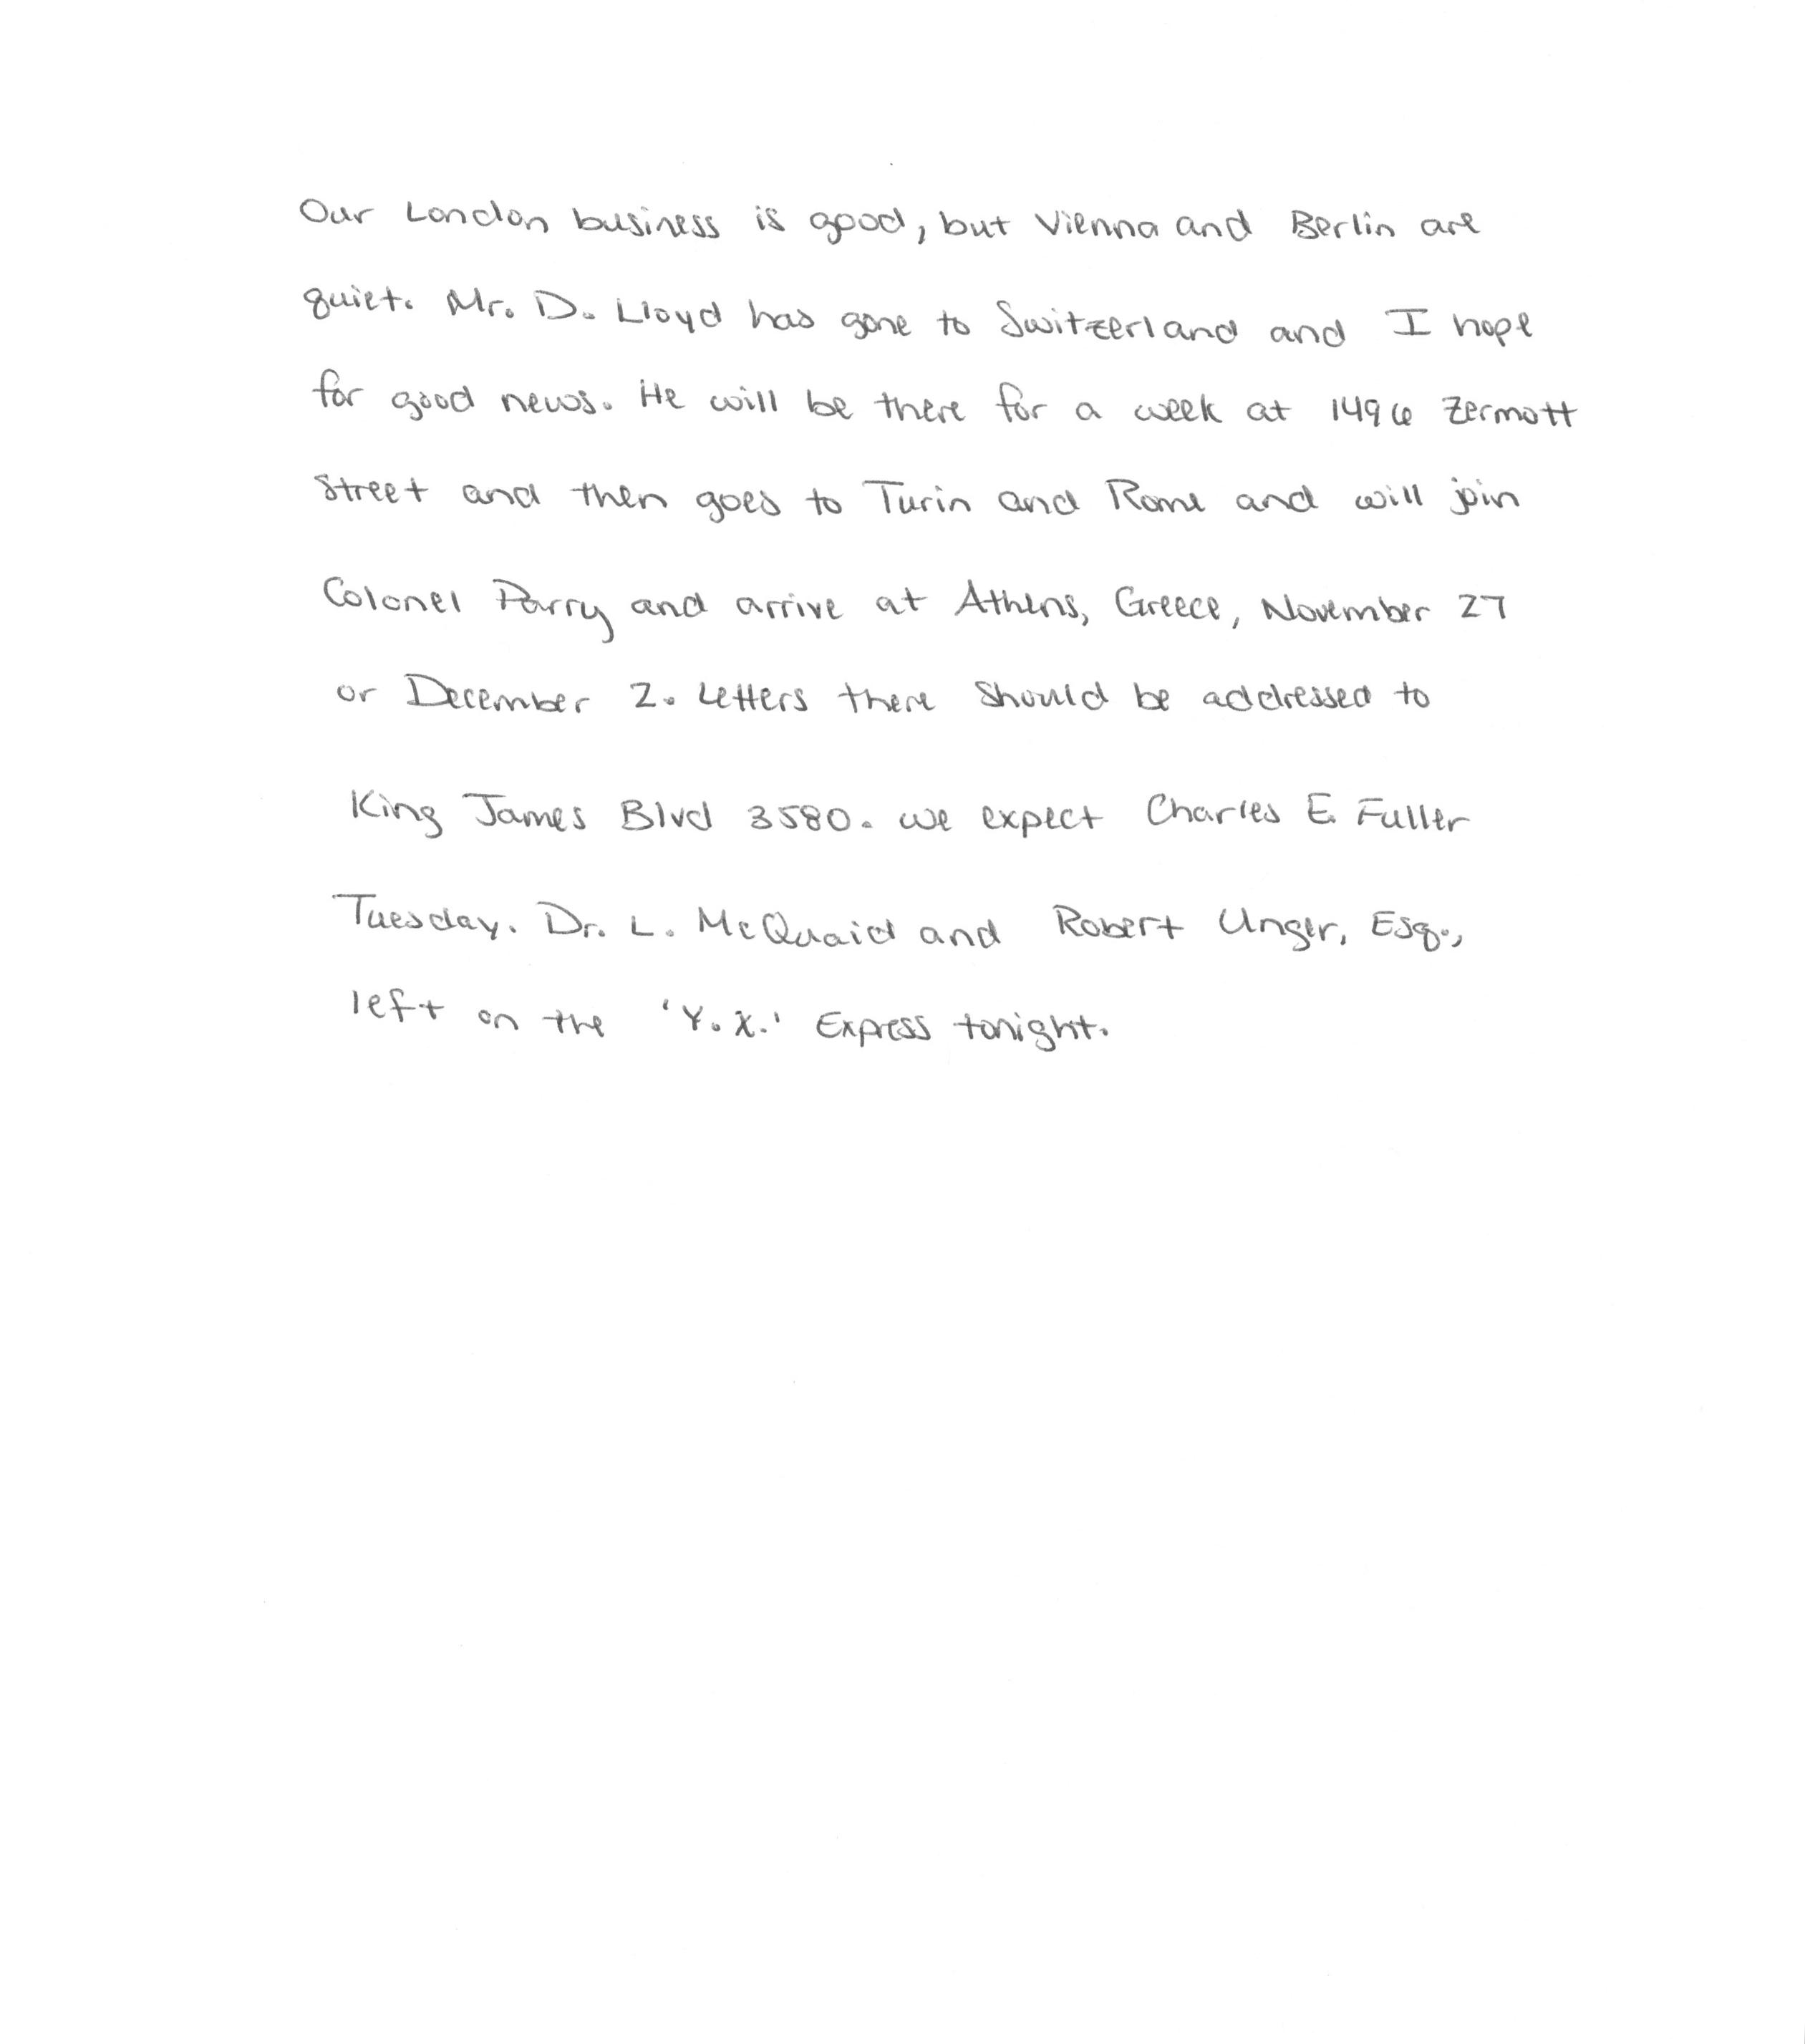 Our London business is good, but Vienna and Berlin are
quiet. Mr. D. Lloyd has gone to Switzerland and I hope
for good news. He will be there for a week at 1496 Zermott
Street and then goes to Turin and Rome and will join
Colonel Parry and arrive at Athens, Greece, November 27
or December 2. Letters there should be addressed to
King James Blvd 3580. We expect Charles E. Fuller
Tuesday. Dr. L. McQuaid and Robert Unger, Esq.,
left on the 'Y.X.' Express tonight.